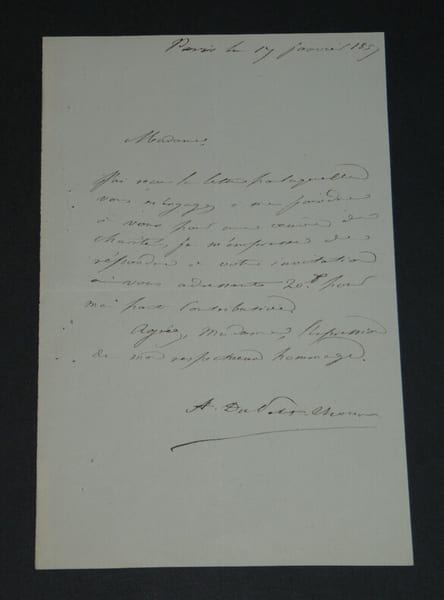 Paris le 17 janvier 1857
Madame
J'ai reçu la lettre par laquelle
vous m'engagez à me joindre
à vous pour une œuvre de
charité, je m'empresse de
répondre à votre invitation
en vous adressant 20 f pour
ma part contributive.
Agréez, Madame, l'expression
de mon respectueux hommage.
A.